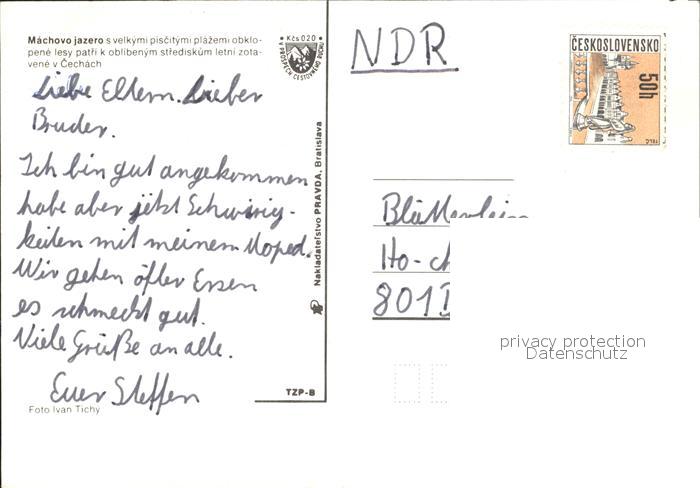 Máchovo jazero s velkými pisčitými plážemi obklo-
pené lesy patří k oblíbeným střediskům letní zota-
vené v Čechách
Kčs 020
A PROSPĚCH CESTOVNÉHO RUCHU
Liebe Eltern. Lieber
Bruder.
Ich bin gut angekommen
habe aber jetzt Schwirig-
keiten mit meinem Moped.
Wir gehen öfter Essen
es schmeckt gut.
Viele Grüße an alle.
Euer Steffen
Foto Ivan Tichy
Nakladateľstvo PRAVDA, Bratislava
TZP-B
NDR
ČESKOSLOVENSKO
50h
TELČ
Ho-ch
801
privacy protection
Datenschutz